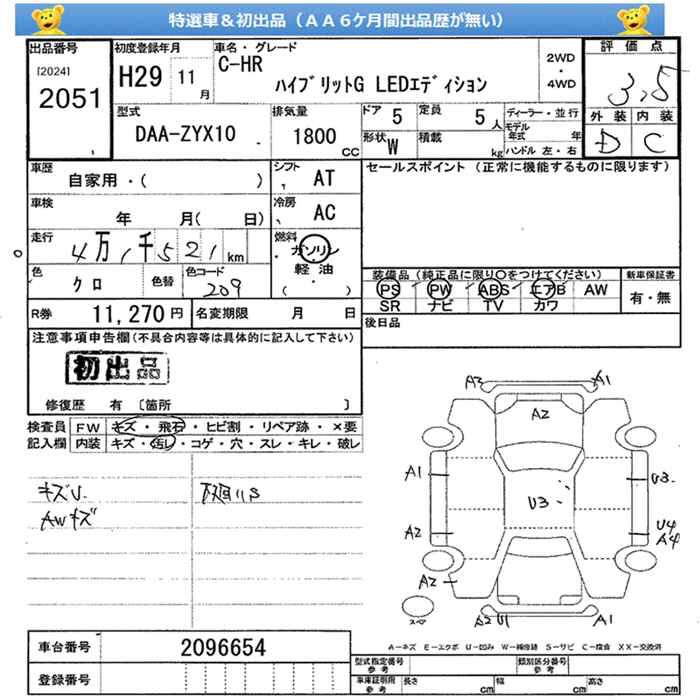 特選車＆初出品（ＡＡ６ケ月間出品歴が無い）
出品番号 初度登録年月 車名・グレード 評価点
[2024] 2051 H29 11月 C-HR ハイブリットG LEDエディション 2WD・4WD 3.5
型式 排気量 ドア 5 定員 5人 ディーラー・並行 外装 内装
DAA-ZYX10 1800CC 形状 W 積載 kg モデル年式 年 ハンドル 左・右 D C
車歴 自家用・( ) シフト AT セールスポイント（正常に機能するものに限ります）
車検 年 月( 日) 冷房 AC
走行 4万1千521km 燃料 ガソリン 軽油 ( )
色 クロ 色替 色コード 209 装備品（純正品に限り〇をつけてください） 新車保証書
PS PW ABS エアB AW 有・無
SR ナビ TV カワ
R券 11,270円 名変期限 月 日 後日品
注意事項申告欄(不具合内容等は具体的に記入して下さい)
初出品
修復歴 有 〔箇所 〕
検査員記入欄 FW キズ・飛石・ヒビ割・リペア跡・×要
内装 キズ・汚レ・コゲ・穴・スレ・キレ・破レ
キズU.
AWキズ
A3 A1
A2
A1 U3 U3
A2 U4 A4
A2
スペア A2 U1 A1
A－キズ E－エクボ U－凹み W－補修跡 S－サビ C－腐食 XX－交換済
車台番号 2096654
型式指定番号 参考 類別区分番号 参考
登録番号 車庫証明用 参考 長さ cm 幅 cm 高さ cm